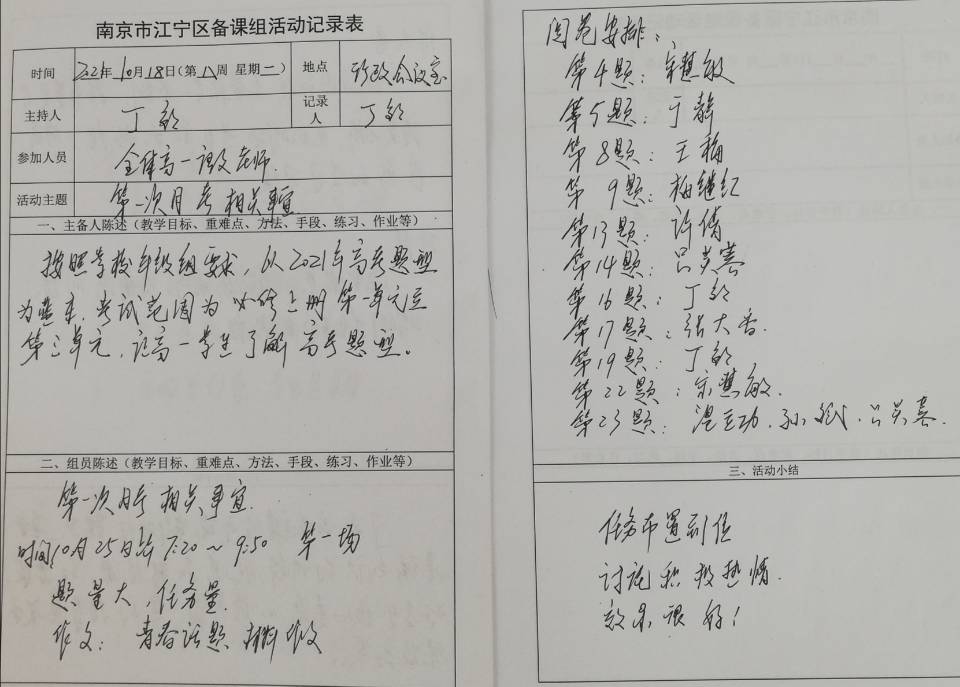 南京市江宁区备课组活动记录表
时间 2021年10月18日(第八周 星期一) 地点 行政会议室
主持人 丁 记录人 丁
参加人员 全体高一语文老师.
活动主题 第一次月考相关事宜
一、主备人陈述(教学目标、重难点、方法、手段、练习、作业等)
按照学校年级组要求,以2021年高考题型
为基本,考试范围为必修上册第一单元至
第三单元,让高一学生了解高考题型。
二、组员陈述(教学目标、重难点、方法、手段、练习、作业等)
第一次月考相关事宜.
时间10月25日 7:20~9:50 第一场
题量大,任务量.
作文:青春话题 材料作文
阅卷安排:
第4题:宋慧敏
第5题:于静
第8题:王梅
第9题:梅继红
第13题:许倩
第14题:吕英喜
第16题:丁
第17题:张大香.
第19题:丁
第22题:宋慧敏.
第23题:温 功.孙斌.吕英喜.
三、活动小结
任务布置到位
讨论积极热情.
效果很好!